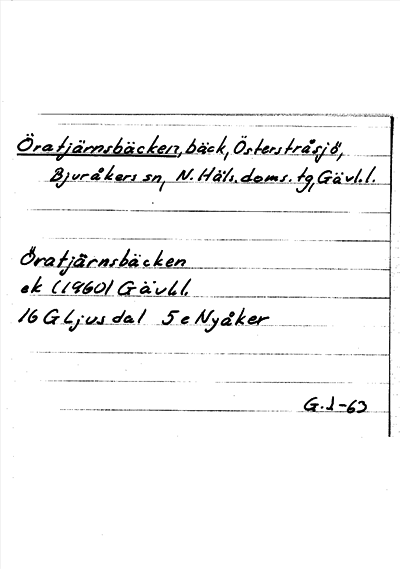 Öratjärnsbäcken, bäck, Österstråsjö,
Bjuråkers sn, N. Häls. doms. tg, Gävl.l.
Öratjärnsbäcken
ek (1960) Gävl.l.
16 G Ljusdal 5 e Nyåker
G.J-63